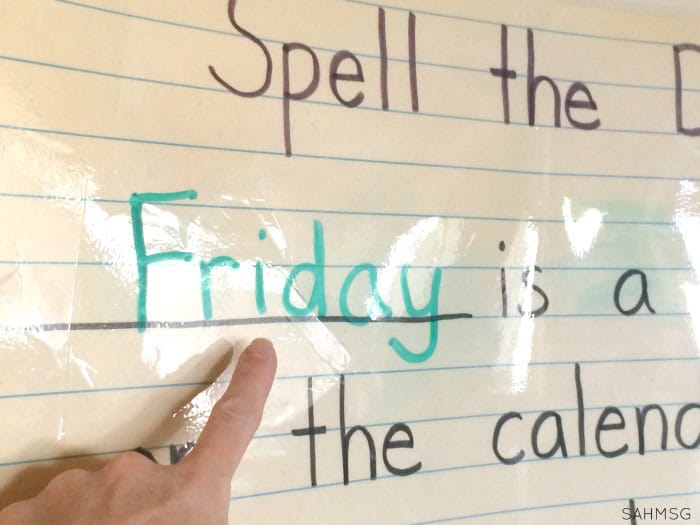 Spell the D
Friday is a
the calend
SAHMSG